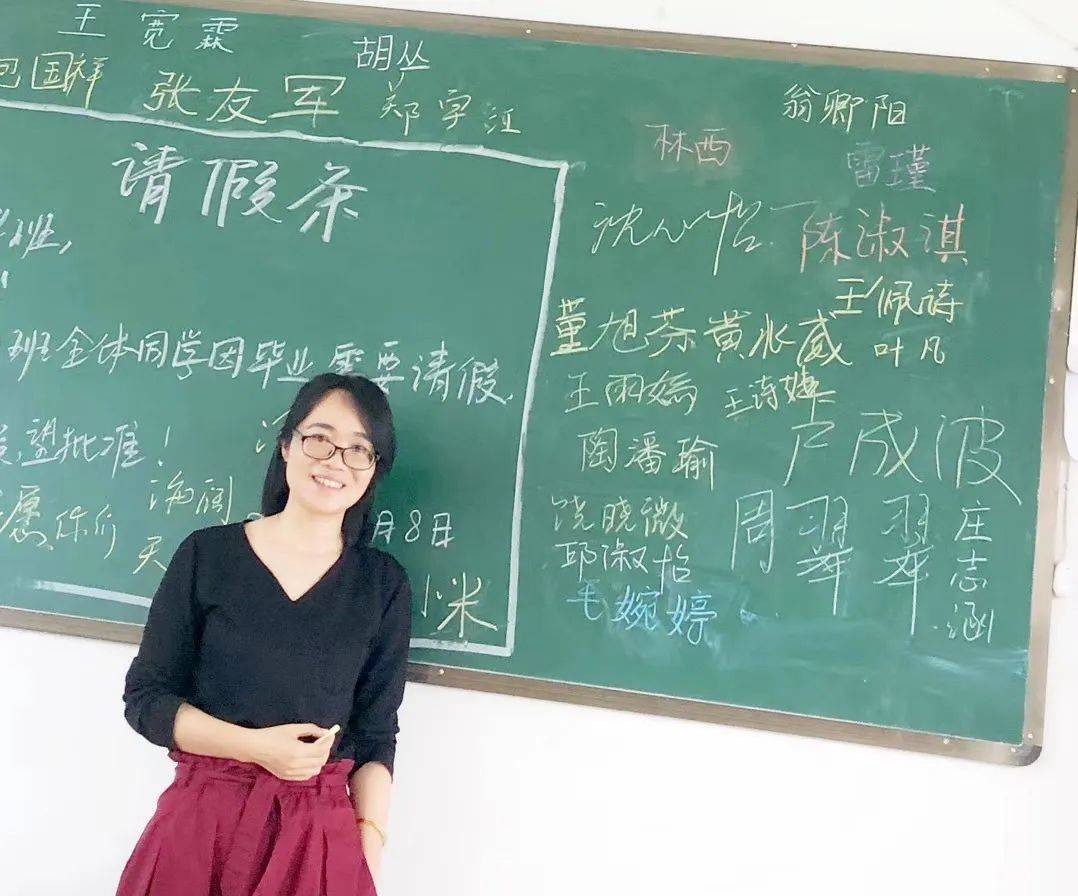 王宽霖
包国祥 张友军
胡丛
郑宇江
请假条
班,
班全体同学因毕业需要请假,
望批准!
海阔
天
愿你们
月8日
小米
翁卿阳
林西
雷瑾
沈心怡
陈淑淇
王佩诗
董旭芬 黄水威 叶凡
王雨嫣 王诗婕
陶潘瑜 卢成波
饶晓微
邱淑怡
毛婉婷
周翠翠
庄志涵